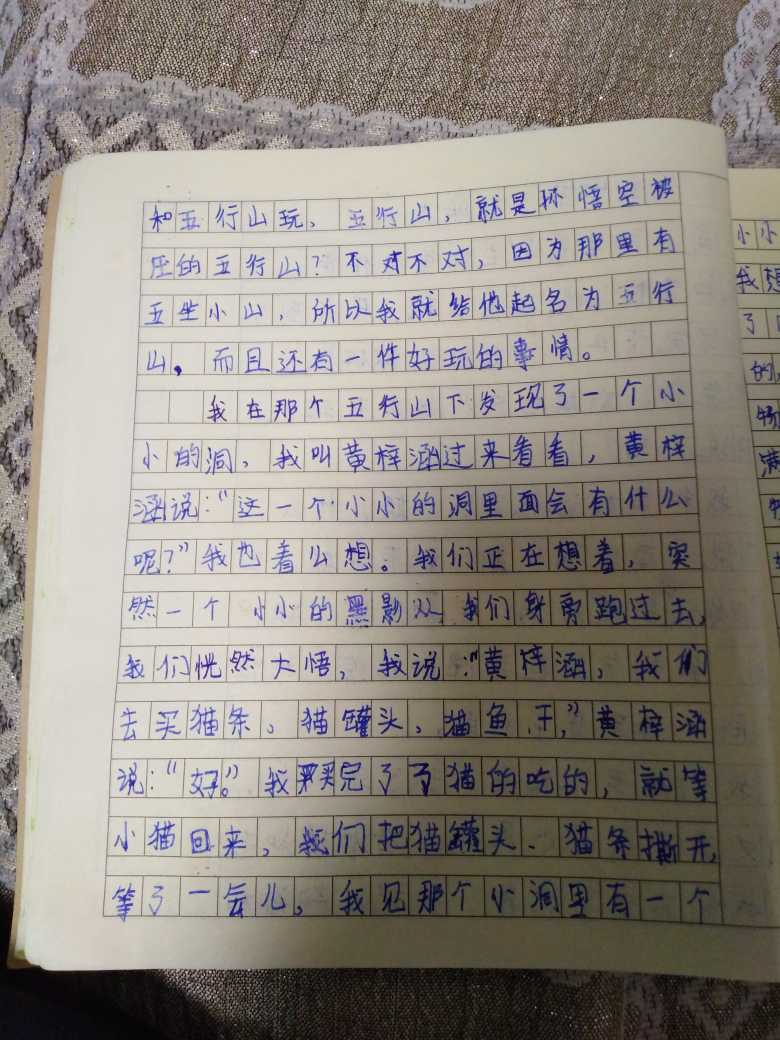 和五行山玩，五行山，就是孙悟空被
压的五行山？不对不对，因为那里有
五坐小山，所以我就给他起名为五行
山，而且还有一件好玩的事情。
我在那个五行山下发现了一个小
小的洞，我叫黄梓涵过来看看，黄梓
涵说：“这一个小小的洞里面会有什么
呢？”我也着么想。我们正在想着，突
然一个小小的黑影从我们身旁跑过去，
我们恍然大悟，我说：“黄梓涵，我们
去买猫条、猫罐头、猫鱼干，”黄梓涵
说：“好。”我买完了了猫的吃的，就等
小猫回来，我们把猫罐头、猫条撕开，
等了一会儿，我见那个小洞里有一个
小小
我想
了
的，
物
满